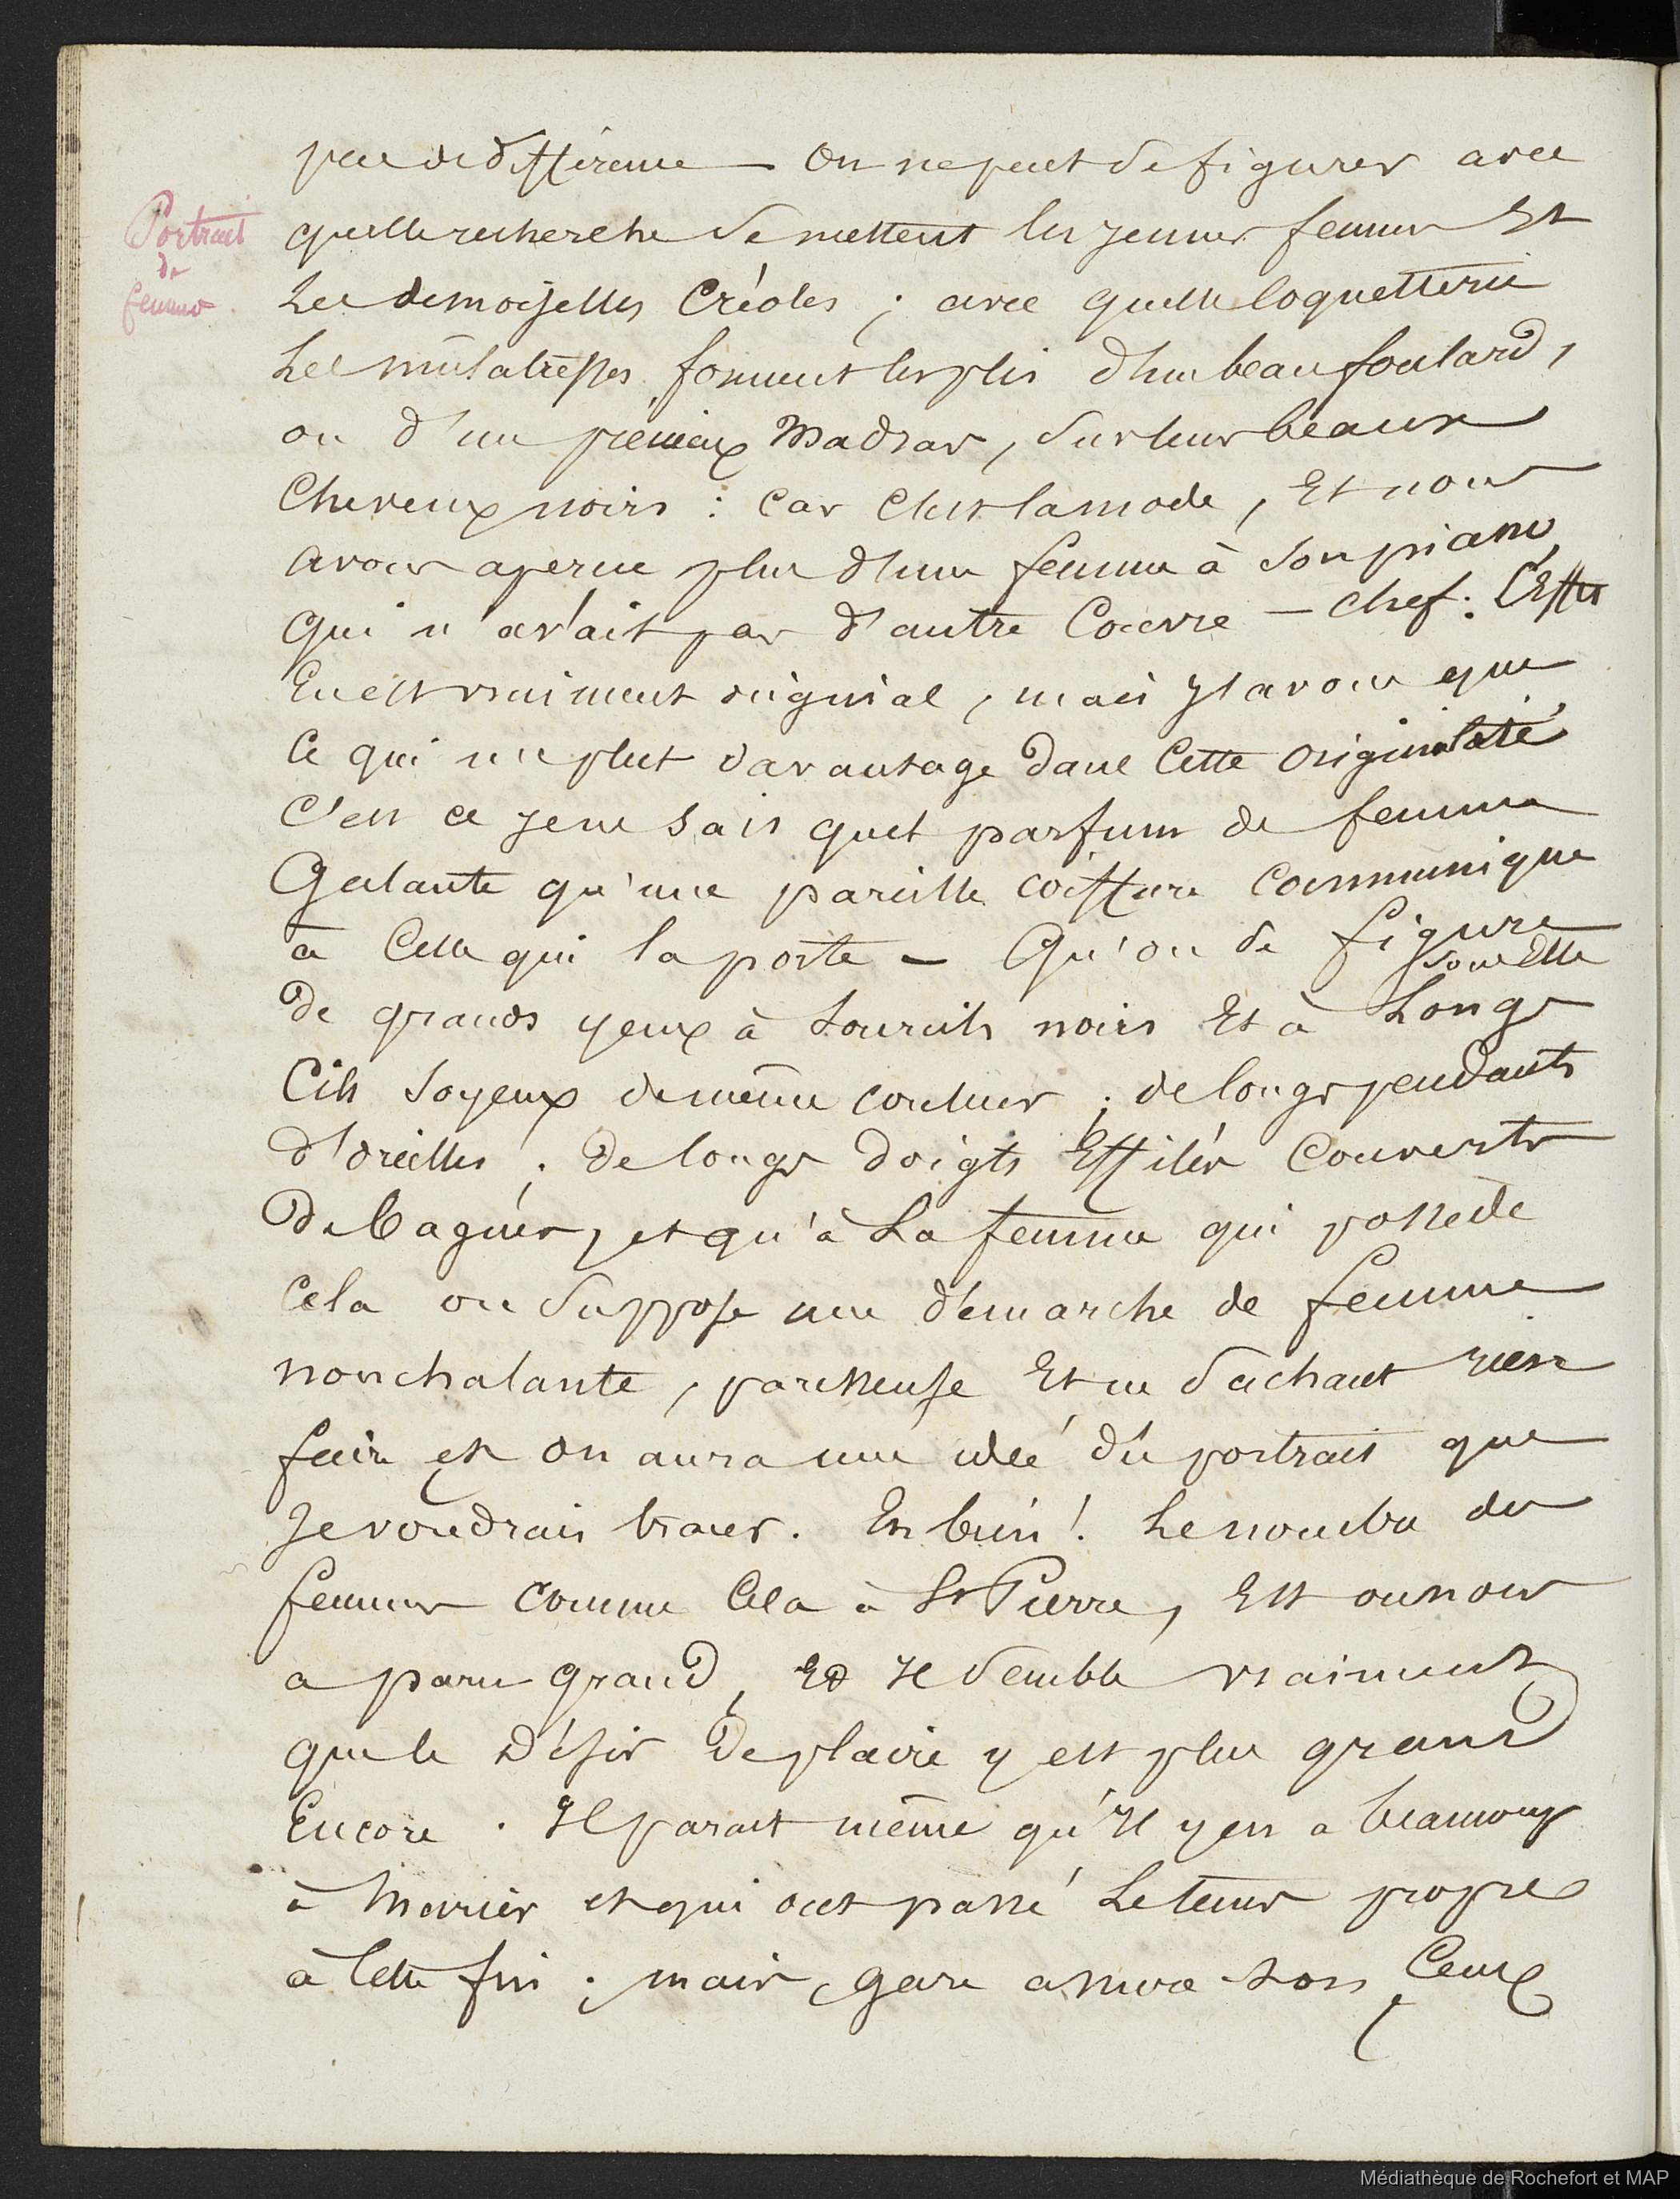 peu de différence — On ne peut se figurer avec
Portrait
de
femme.
quelle recherche se mettent les jeunes femmes Et
Les demoiselles Créoles ; avec quelle coquetterie
Les mulatresses forment les plis d'un beau foulard,
ou d'un précieux Madras, sur leurs beaux
Cheveux noirs : Car c'est la mode, Et nous
avons aperçu plus d'une femme à son piano,
qui n'avait pas d'autre Couvre-chef : L'effet
En est vraiment original, mais J'avoue que
Ce qui me plut davantage dans Cette originalité,
C'est ce je ne sais quel parfum de femme
Galante qu'une pareille coiffure Communique
à Celle qui la porte — Qu'on se figure
sous Elle
De grands yeux à sourcils noirs Et à Longs
Cils soyeux de même couleur ; de longs pendants
d'oreilles ; De longs doigts Effilés Couverts
De bagues, et qu'à La femme qui possède
Cela on suppose une démarche de femme
nonchalante, paresseuse Et ne sachant rien
faire et on aura une idée du portrait que
Je voudrais tracer. Eh bien ! Le nombre des
femmes comme Cela à St Pierre, Est ou nous
a paru grand, Et Il semble vraiment
que le Désir De plaire y est plus grand
Encore. Il parait même qu'Il y en a beaucoup
à Marier et qui ont passé Le tems propre
à Cette fin ; mais, gare à nous son Ceux
Médiathèque de Rochefort et MAP